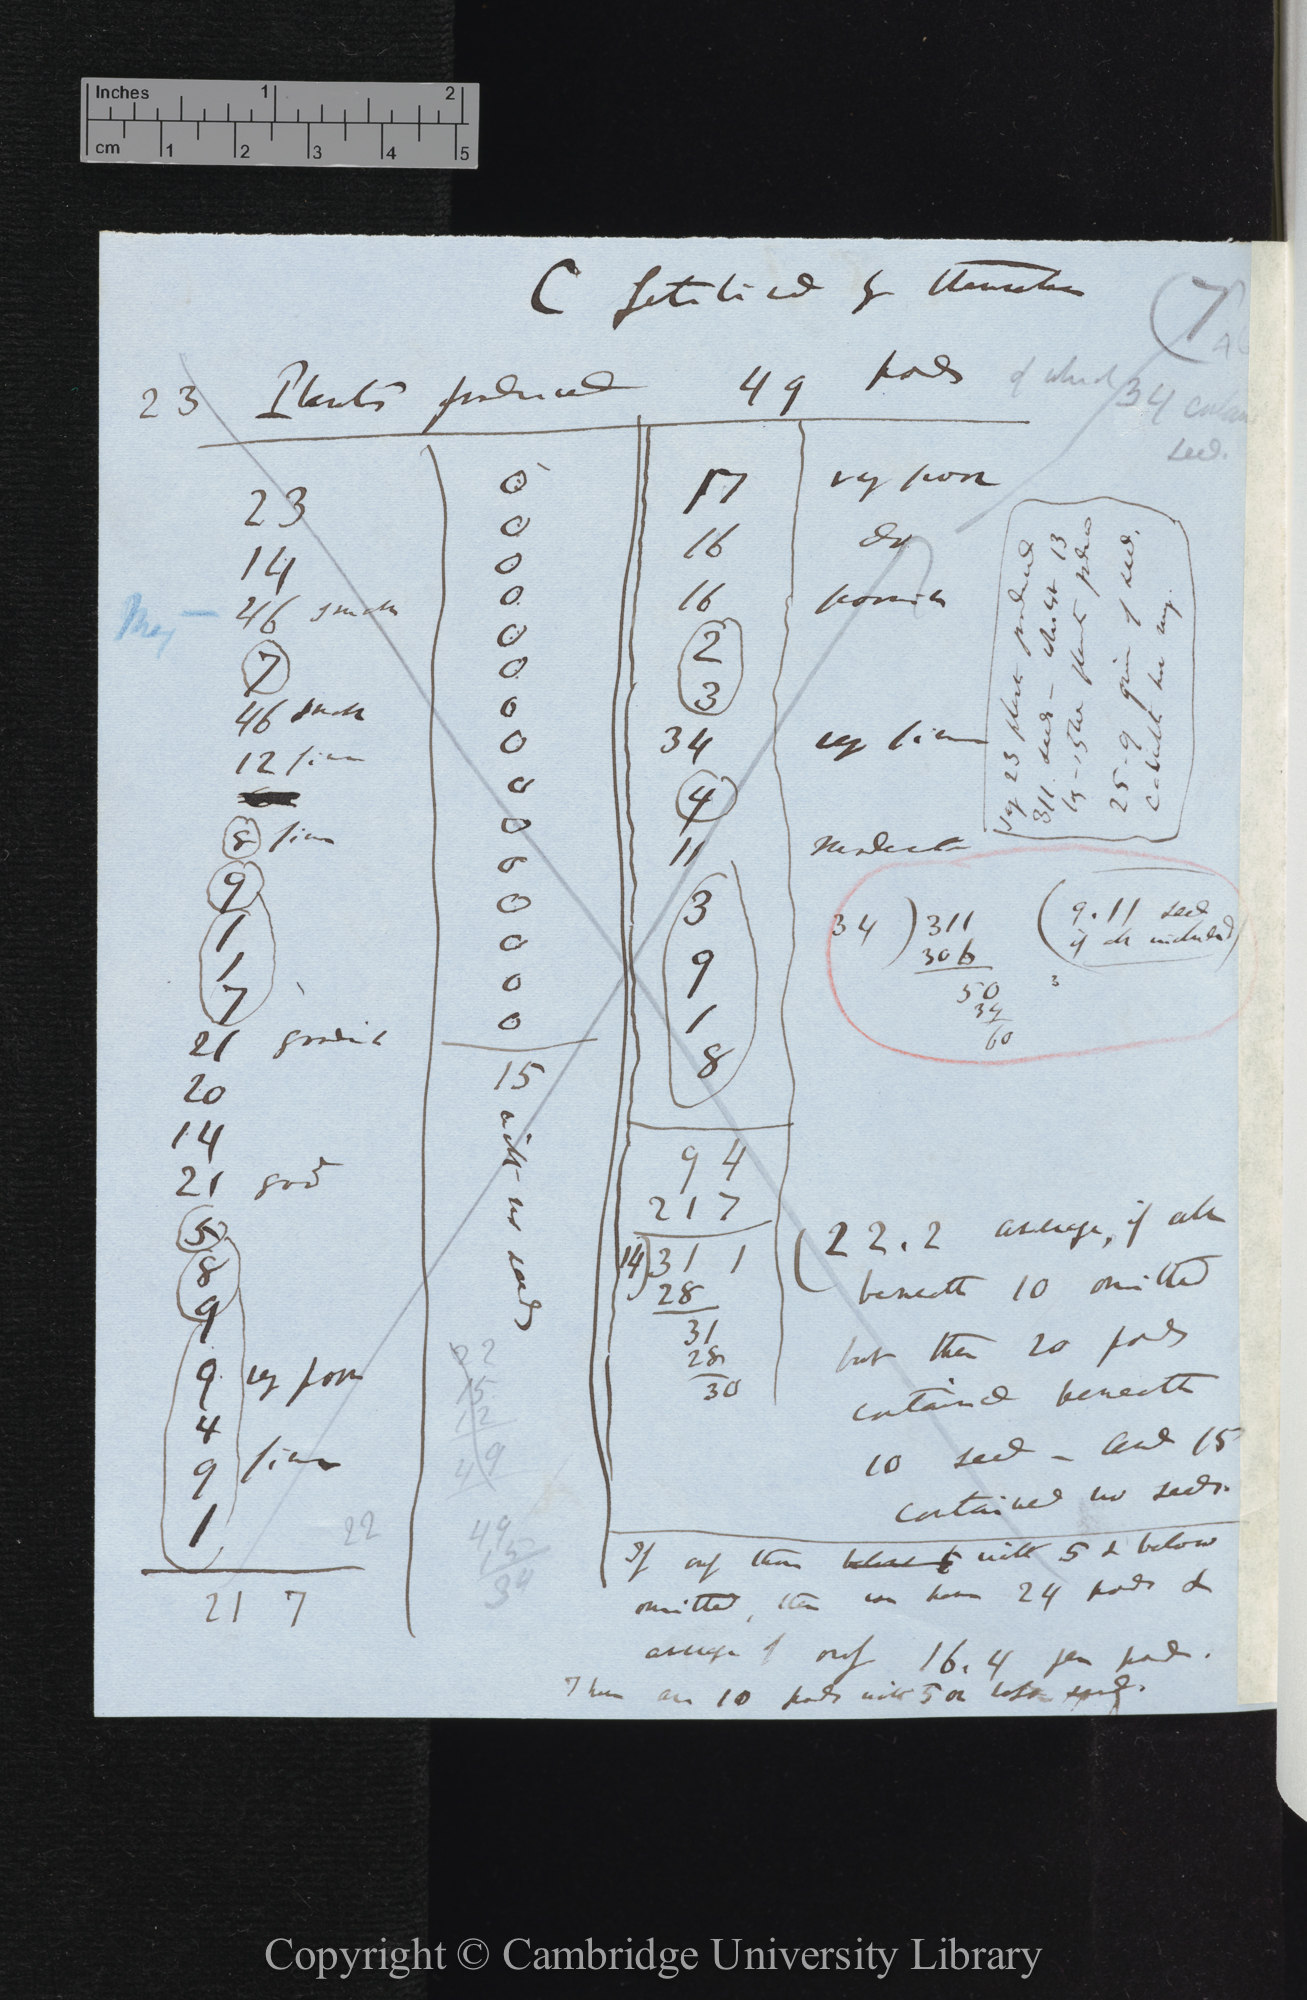 Inches 1 2
cm 1 2 3 4 5
C fertilised by themselves
(7
23 Plants produced 49 pods of which 34 contain
seed.
23
14
46 small
7
46 small
12 fine
8 fine
9
1
1
7
21 goodish
20
14
21 good
5
8
9
9 very poor
4
9 fine
1
22
217
0
0
0
0
0
0
0
0
0
0
0
0
0
0
0
15
with no seeds
22
15
12
49
49
15
34
17 very poor
16 do
16 poorish
2
3
34 very fine
4
11 moderate
3
9
1
8
94
217
14) 311
28
31
28
30
Say 23 plants produced
311 seeds - which 13
25.9 grain of seed.
34) 311 (9.11 seed
306 if all included)
50
34
60
(22.2 average, if all
beneath 10 omitted
but then 20 pods
contained beneath
10 seed - and 15
contained no seeds.
If only them with 5 & below
omitted, then we have 24 pods &
average of only 16.4 per pod.
There are 10 pods with 5 or below
Copyright © Cambridge University Library